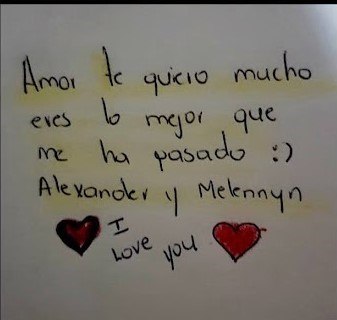 Amor te quiero mucho
eres lo mejor que
me ha pasado :)
Alexander y Melennyn
I
Love you